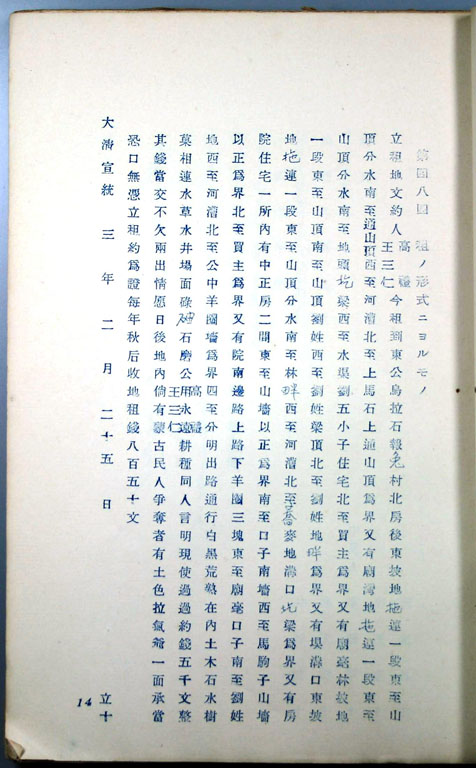 第四八四 租ノ形式ニヨルモノ
立租地文約人 高禮 王三仁 今租到東公烏拉石報兔村北房後東坡地拖連一段東至山
頂分水南至通山頂西至河漕北至上馬石上通山頂爲界又有廟溝地拖連一段東至
山頂分水南至地頭圪梁西至水垻劉五小子住宅北至買主爲界又有廟毫林坡地
一段東至山頂南至山頂劉姓西至劉姓梁頂北至劉姓地畔爲界又有垻溝口東坡
地拖連一段東至山頂分水南至林畔西至河漕北至蕎麥地溝口圪梁爲界又有房
院住宅一所內有中正房二間東至山墻以正爲界南至口子南墻西至馬駒子山墻
以正爲界北至買主爲界又有院南邊路上路下羊圈三塊東至廟毫口子南至劉姓
地西至河漕北至公中羊圈墻爲界四至分明出路通行白黑荒熟在內土木石水樹
菓相連水草水井場面碌砘石磨公用永遠耕種同人言明現使過過約錢五千文整
其錢當交不欠兩出情愿日後地內倘有蒙古民人爭奪者有土色拉氣爺一面承當
高禮 王三仁
恐口無憑立租約爲證每年秋后收地租錢八百五十文
大淸宣統三年二月二十五日 立十
14